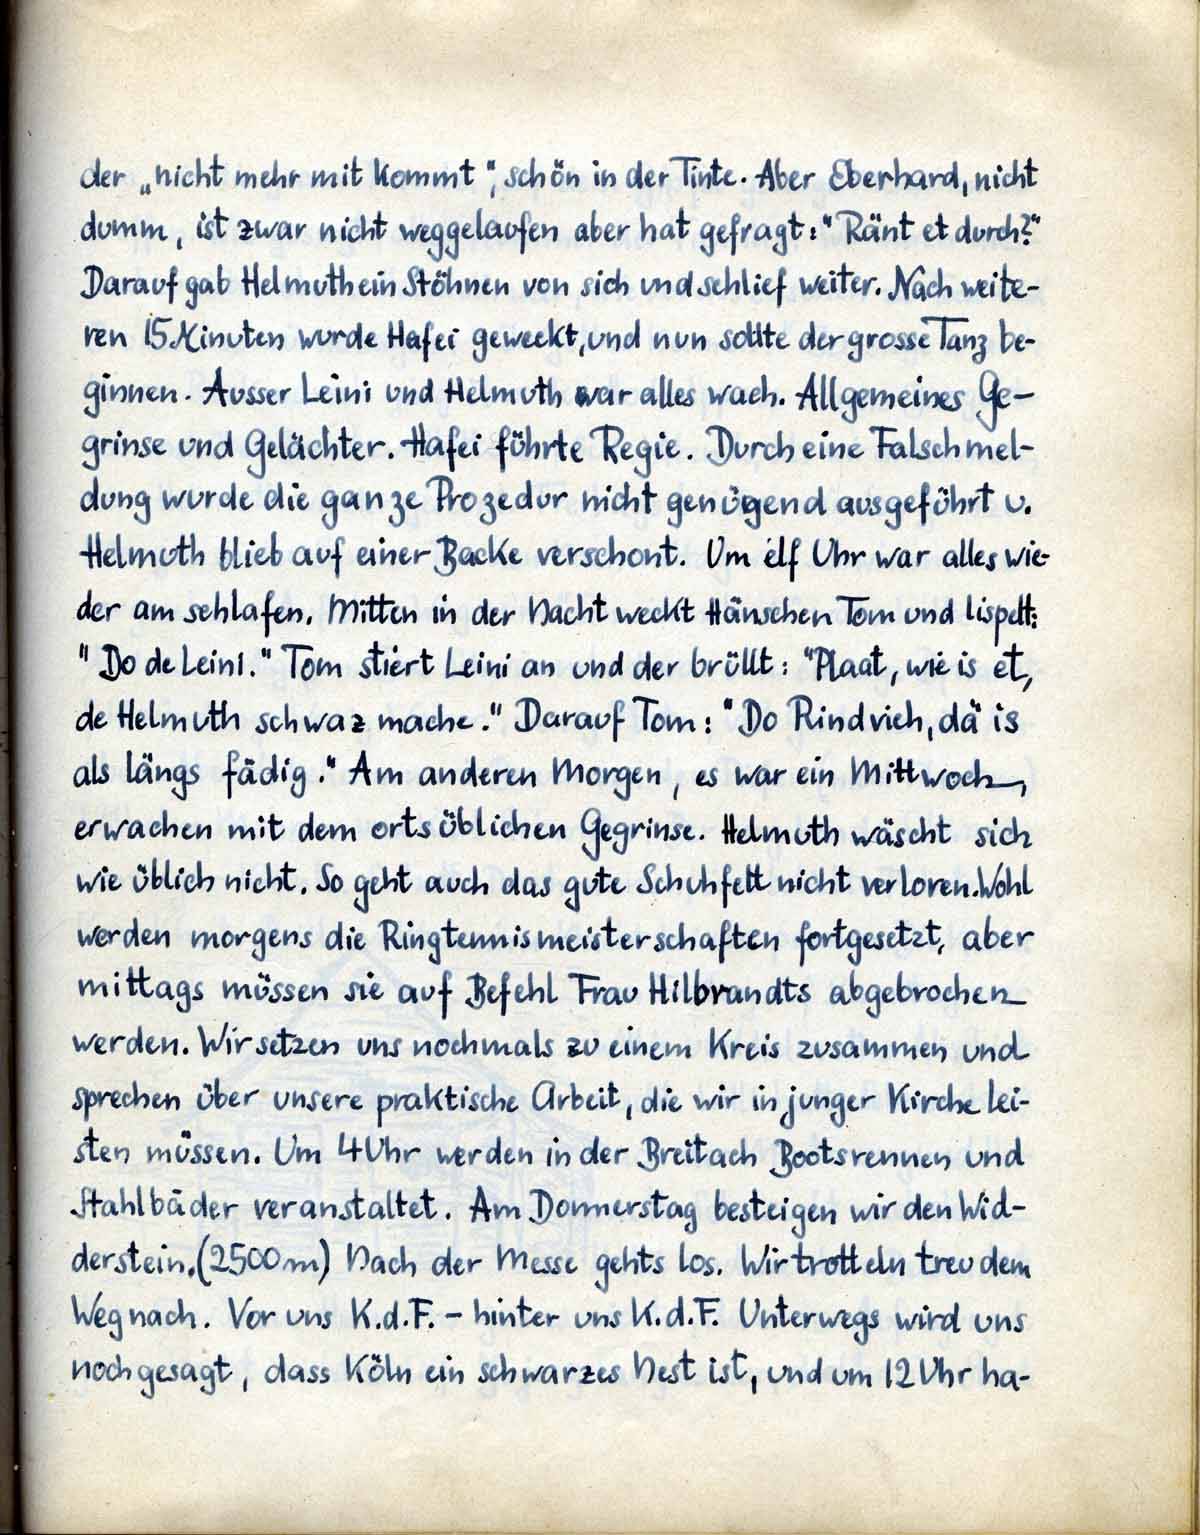 der „nicht mehr mit kommt", schön in der Tinte. Aber Eberhard, nicht
dumm, ist zwar nicht weggelaufen aber hat gefragt: "Ränt et durch?"
Darauf gab Helmuth ein Stöhnen von sich und schlief weiter. Nach weite-
ren 15 Minuten wurde Hafei geweckt, und nun sollte der grosse Tanz be-
ginnen. Ausser Leini und Helmuth war alles wach. Allgemeines Ge-
grinse und Gelächter. Hafei führte Regie. Durch eine Falschmel-
dung wurde die ganze Prozedur nicht genügend ausgeführt u.
Helmuth blieb auf einer Backe verschont. Um elf Uhr war alles wie-
der am schlafen. Mitten in der Nacht weckt Hänschen Tom und lispelt:
"Do de Leini." Tom stiert Leini an und der brüllt: "Plaat, wie is et,
de Helmuth schwaz mache." Darauf Tom: "Do Rindvieh, dä is
als längs fädig." Am anderen Morgen, es war ein Mittwoch,
erwachen mit dem ortsüblichen Gegrinse. Helmuth wäscht sich
wie üblich nicht. So geht auch das gute Schuhfett nicht verloren. Wohl
werden morgens die Ringtennismeisterschaften fortgesetzt, aber
mittags müssen sie auf Befehl Frau Hilbrandts abgebrochen
werden. Wir setzen uns nochmals zu einem Kreis zusammen und
sprechen über unsere praktische Arbeit, die wir in junger Kirche lei-
sten müssen. Um 4 Uhr werden in der Breitach Bootsrennen und
Stahlbäder veranstaltet. Am Donnerstag besteigen wir den Wid-
derstein. (2500 m) Nach der Messe gehts los. Wir trotteln treu dem
Weg nach. Vor uns K.d.F. - hinter uns K.d.F. Unterwegs wird uns
noch gesagt, dass Köln ein schwarzes Nest ist, und um 12 Uhr ha-